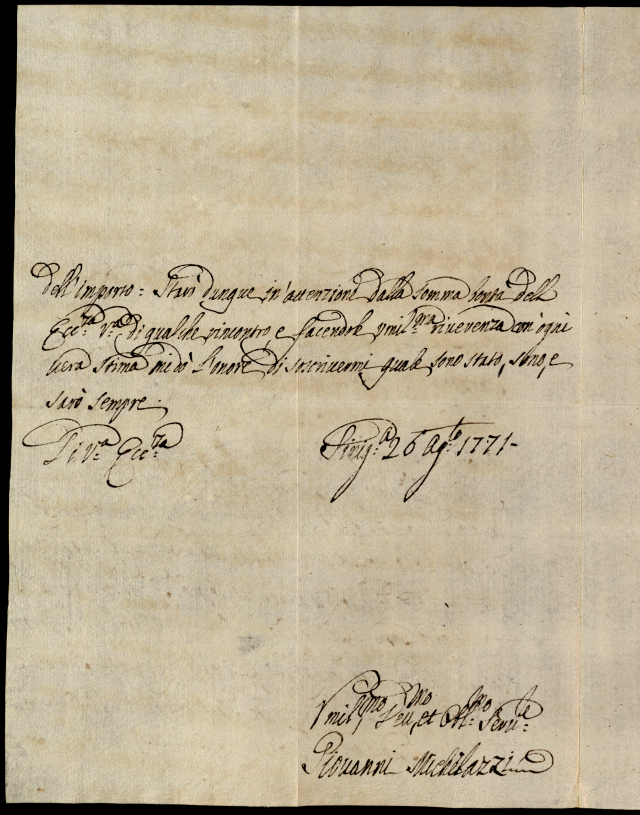 dell'importo: Starò dunque in'attenzione dalla somma bontà dell
Ecc:za V:a di qualche rincontro, e facendole umil:ma riverenza con'ogni
vera stima mi dò l'onore di soscrivermi quale sono stato, sono, e
sarò sempre.
Di V:a Ecc:za
Sinig:a 26 Ag:to 1771-
Umil:mo Dev:mo, et Obl:mo Serv:le
Giovanni Michelazzi